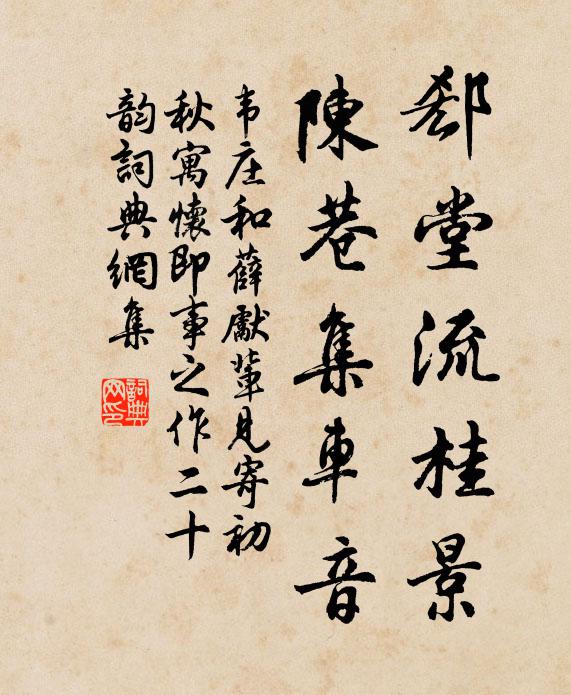 郄堂流桂景
陳巷集車音
韦庄和薛獻輩見寄初
秋寓懷即事之作二十
韵詞典網集
詞典网印